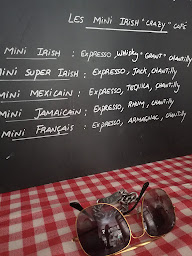 LES MINI IRISH "CRAZY" CAFÉ
MINI IRISH : EXPRESSO, WHISKY "GRANT" CHANTILLY
MINI SUPER IRISH : EXPRESSO, JACK, CHANTILLY
MINI MEXICAIN : EXPRESSO, TEQUILA, CHANTILLY
MINI JAMAICAIN : EXPRESSO, RHUM, CHANTILLY
MINI FRANÇAIS : EXPRESSO, ARMAGNAC, CHANTILLY